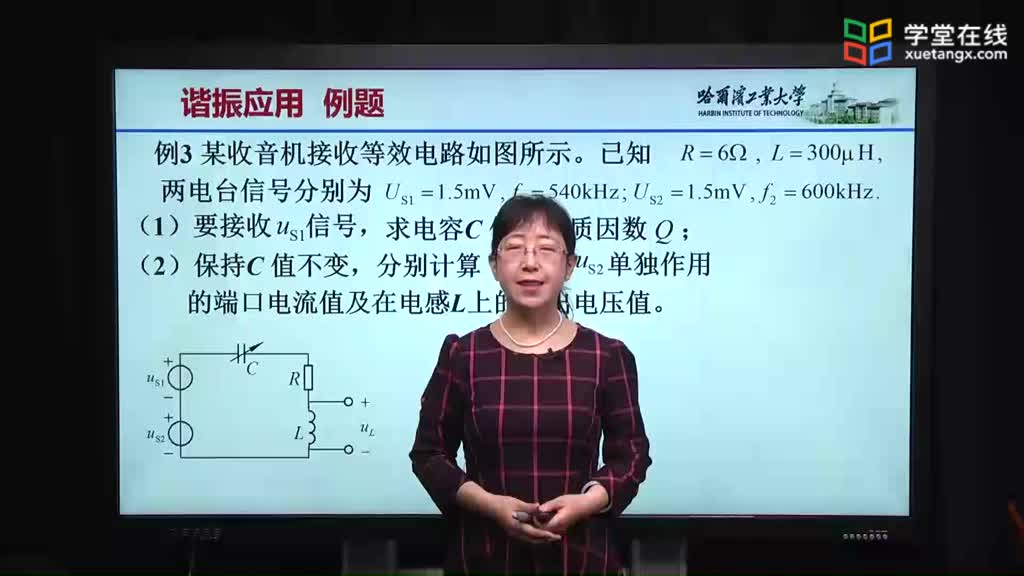 学堂在线
xuetangx.com
谐振应用 例题
哈尔滨工业大学
HARBIN INSTITUTE OF TECHNOLOGY
例3 某收音机接收等效电路如图所示。已知 R=6Ω , L=300μH,
两电台信号分别为 U_S1=1.5mV, f =540kHz; U_S2=1.5mV, f₂=600kHz.
（1）要接收 u_S1 信号，求电容C 质因数 Q；
（2）保持C 值不变，分别计算 u_S2 单独作用
的端口电流值及在电感L上的 电压值。
+
C
u_S1
R
−
+
+
u_S2
L
u_L
−
−